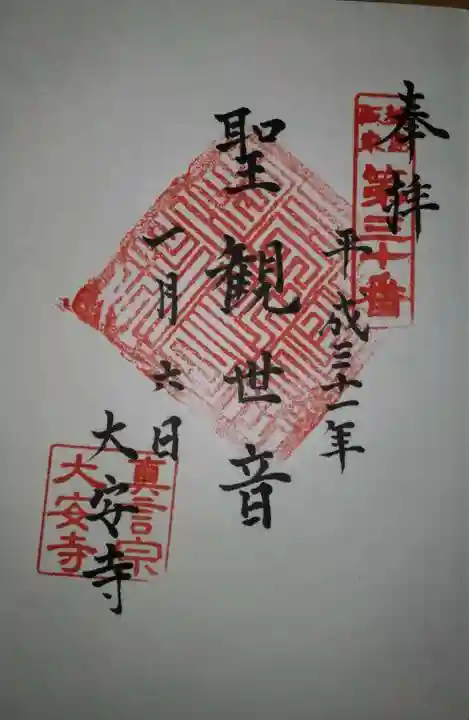 奉拝
第三十番
平成三十一年
聖観世音
一月六日
大安寺
真言宗
大安寺